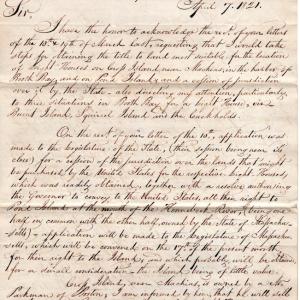 April 7. 1821.
Sir.
I have the honor to acknowledge the rect. of your letters
of the 10th & 17th of March last, requesting that I would take
steps for obtaining the title to land most suitable for the location
of Light Houses on Cross Island, near Machias, in the harbor of
Booth Bay, and on Pond Island, and a cession of jurisdiction
over it by the State, also directing my attention, particularly,
to three situations in Booth Bay for a Light House, viz
Burnt Island, Squirrel Island and the Cuckholds.
On the rect. of your letter of the 10th, application was
made to the legislature of the State, (their session being near its
close) for a cession of the jurisdiction over the lands that might
be purchased by the United States for the respective Light Houses,
which was readily obtained, together with a resolve, authorizing
the Governor to convey to the United States, all their right to
Pond Island at the mouth of the Kennebec River, being one
half in common with the other half, owned by the State of Massachu-
setts, application will be made to the legislature of Massachu-
setts, which will be convened on the 17th of the present month,
for their right to the Island, and which probably will be obtained
for a small consideration, the Island being of little value.
Cross Island, near Machias, is owned by a Mr.
Parkman of Boston, I am informed by him, that he will sell